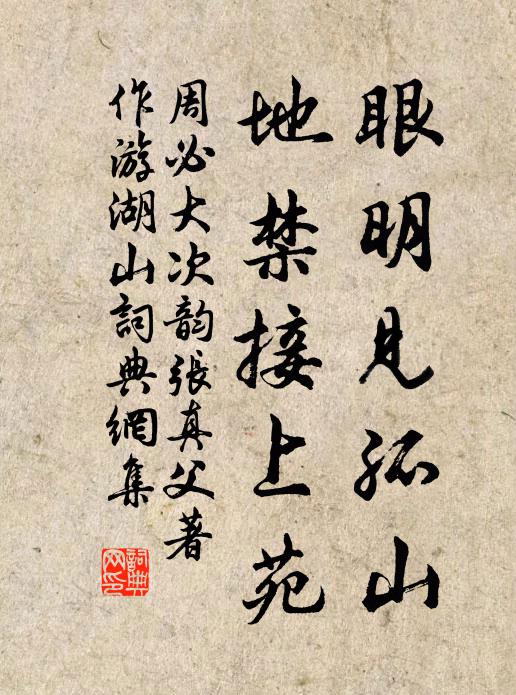 眼明見孤山
地禁接上苑
周必大次韵張真父著
作游湖山詞典網集
詞典网印